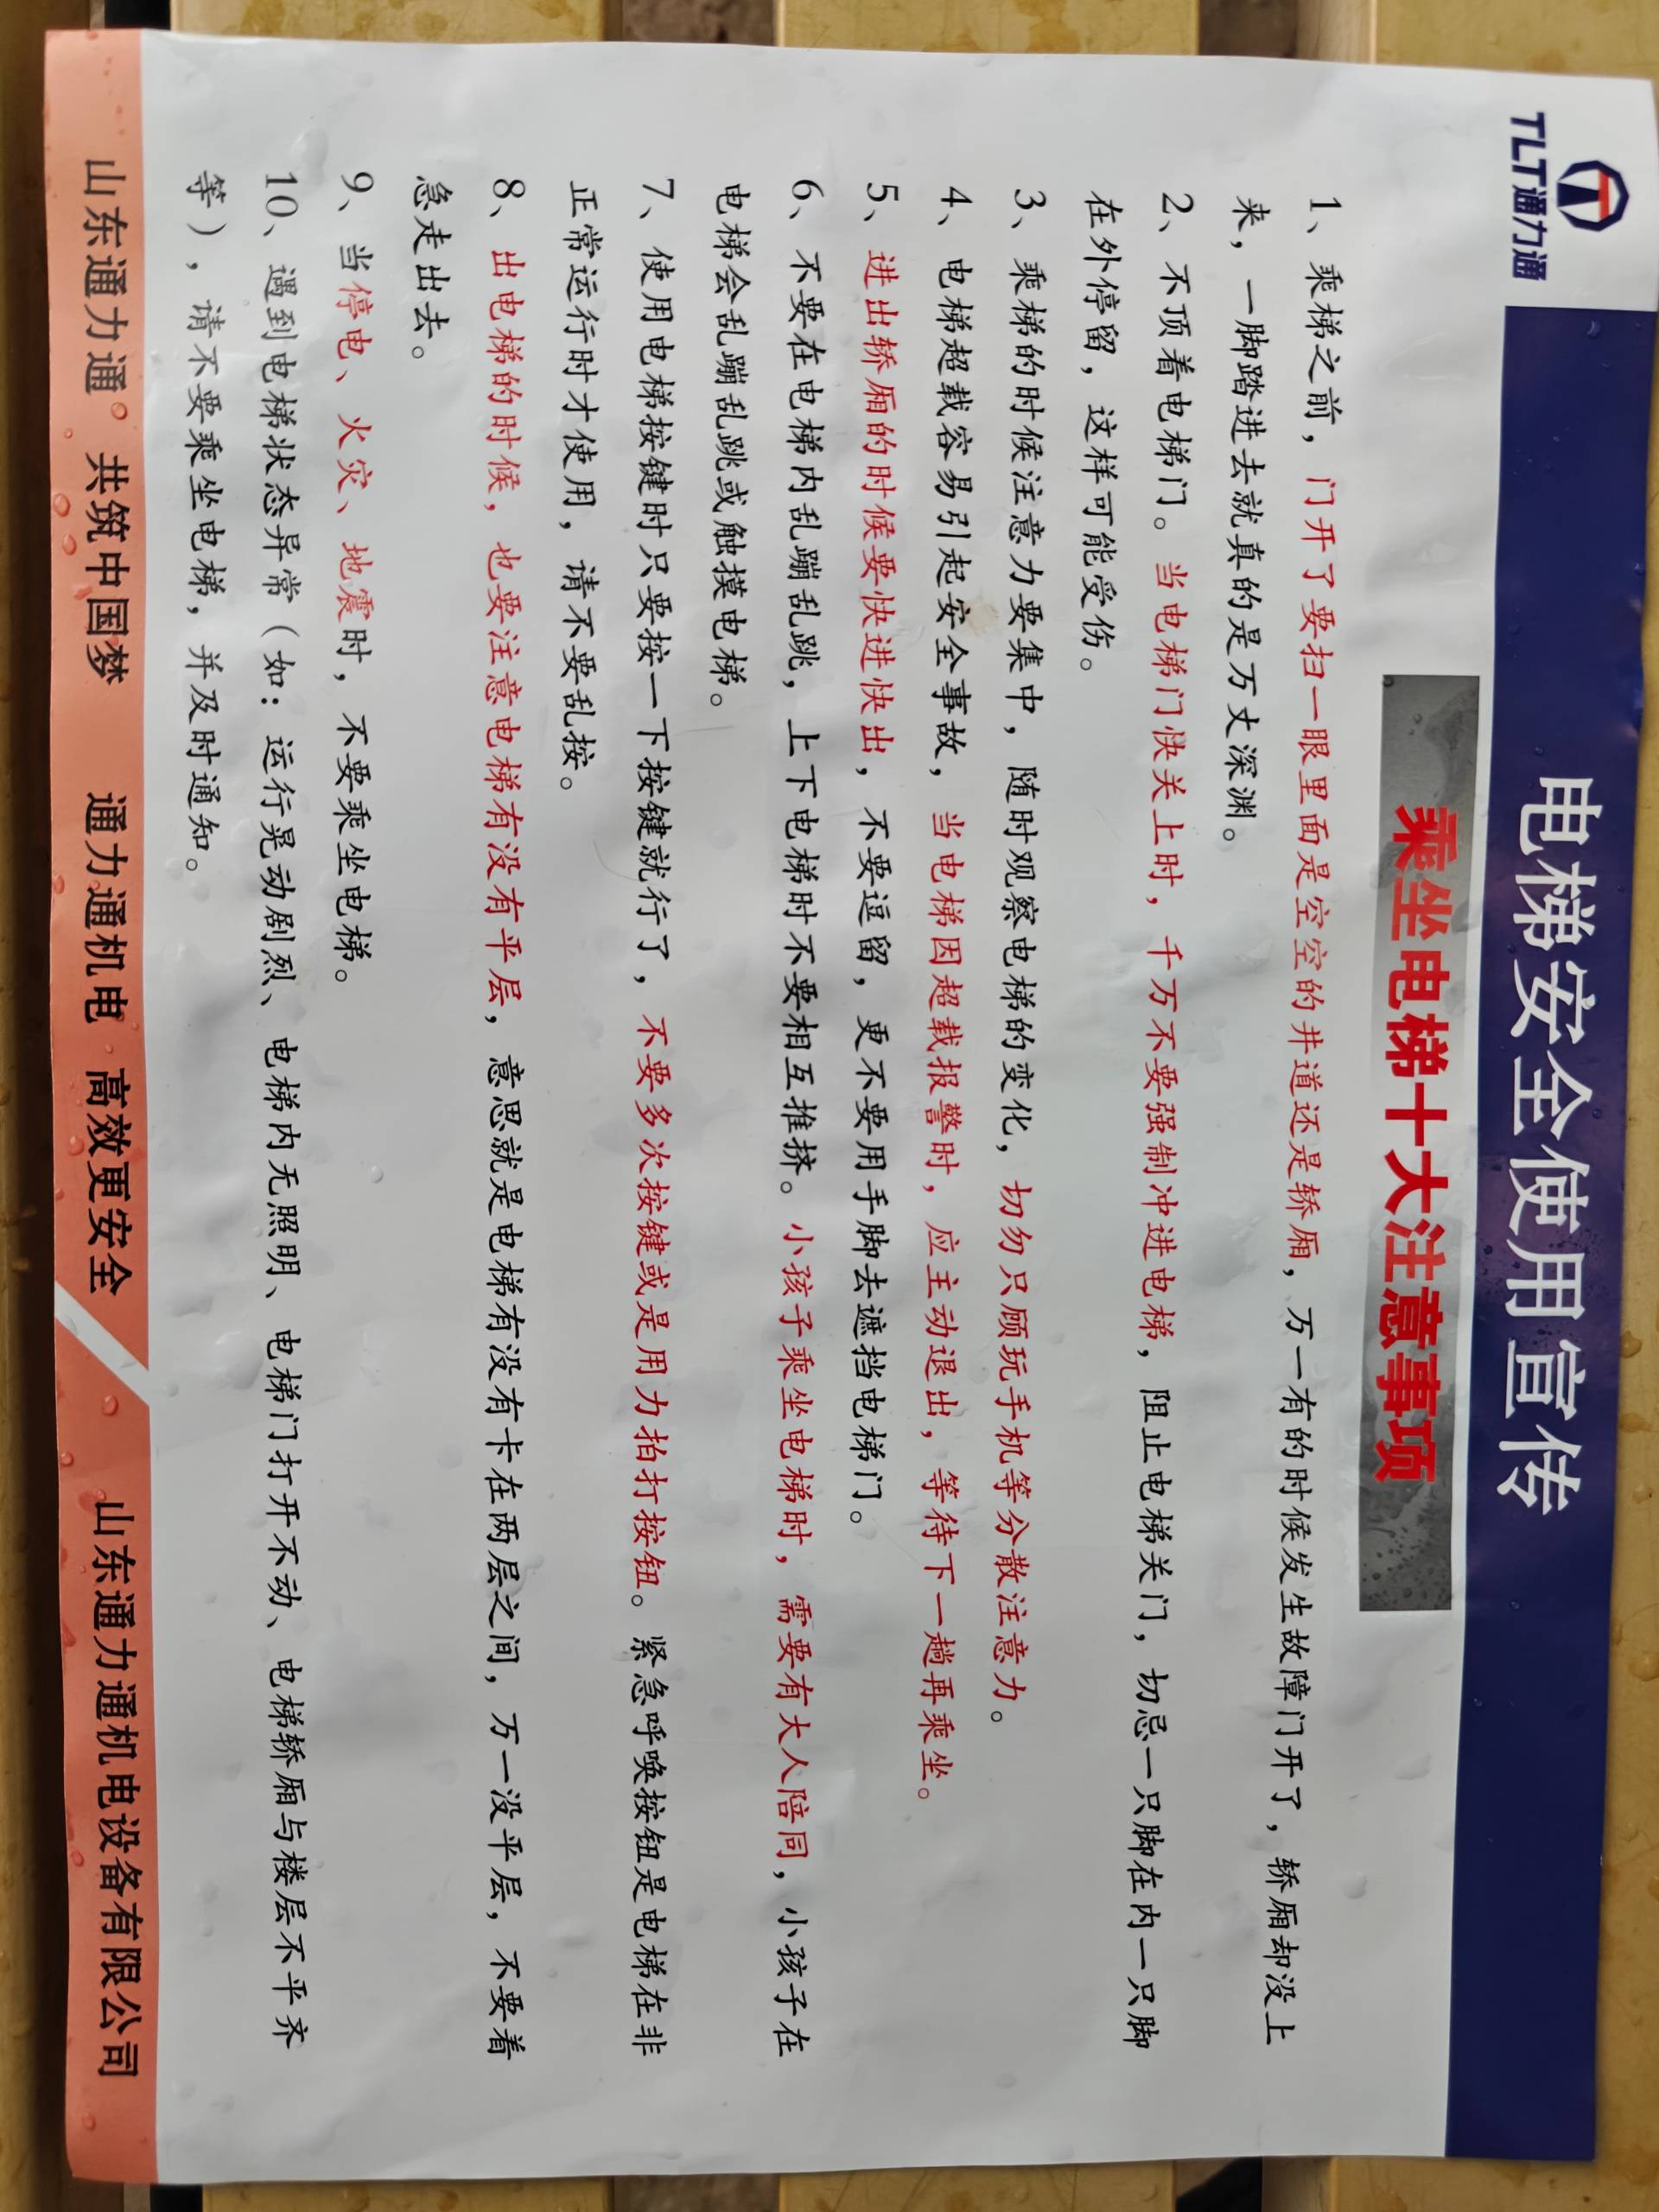 TLT通力通
电梯安全使用宣传
乘坐电梯十大注意事项
1、乘梯之前，门开了要扫一眼里面是空空的井道还是轿厢，万一有的时候发生故障门开了，轿厢却没上
来，一脚踏进去就真的是万丈深渊。
2、不顶着电梯门。当电梯门快关上时，千万不要强制冲进电梯，阻止电梯关门，切忌一只脚在内一只脚
在外停留，这样可能受伤。
3、乘梯的时候注意力要集中，随时观察电梯的变化，切勿只顾玩手机等分散注意力。
4、电梯超载容易引起安全事故，当电梯因超载报警时，应主动退出，等待下一趟再乘坐。
5、进出轿厢的时候要快进快出，不要逗留，更不要用手脚去遮挡电梯门。
6、不要在电梯内乱蹦乱跳，上下电梯时不要相互推挤。小孩子乘坐电梯时，需要有大人陪同，小孩子在
电梯会乱蹦乱跳或触摸电梯。
7、使用电梯按键时只要按一下按键就行了，不要多次按键或是用力拍打按钮。紧急呼唤按钮是电梯在非
正常运行时才使用，请不要乱按。
8、出电梯的时候，也要注意电梯有没有平层，意思就是电梯有没有卡在两层之间，万一没平层，不要着
急走出去。
9、当停电、火灾、地震时，不要乘坐电梯。
10、遇到电梯状态异常（如：运行晃动剧烈、电梯内无照明、电梯门打开不动、电梯轿厢与楼层不平齐
等），请不要乘坐电梯，并及时通知。
山东通力通 共筑中国梦 通力通机电 高效更安全 山东通力通机电设备有限公司